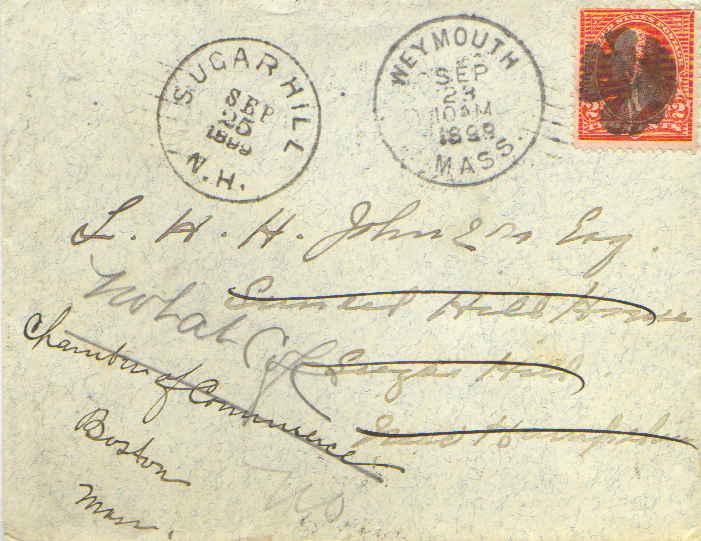 SUGAR HILL
SEP
25
1899
N.H.
WEYMOUTH
SEP
23
10 AM
1899
MASS.
UNITED STATES POSTAGE
2 2
L. H. H. Johnson Esq.
Sunset Hill House
Sugar Hill
New Hampshire
Not at
Chamber of Commerce
Boston
Mass.